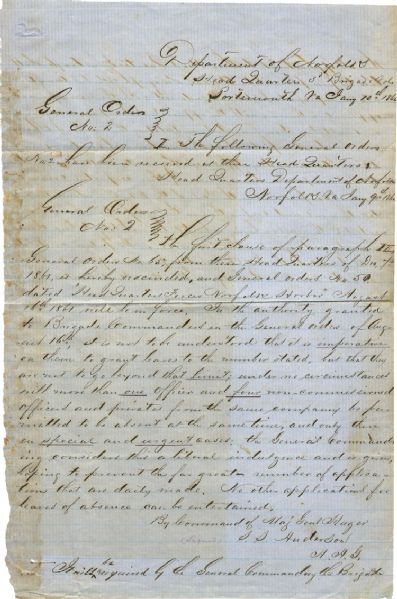 Department of Norfolk
Head Quarters Brigade
Portsmouth Va Jany 10th 186
General Orders
No. 2
I. The following General Orders
No 2 has been received at these Head Quarters
Head Quarters Department of Norfolk
Norfolk Va Jany 9th 186
General Orders
No. 2
I The first clause of paragraph
General Orders No. from these Head Quarters of Dec 7
1861, is hereby rescinded, and General orders No 50
dated Head Quarters Forces Norfolk Harbor August
16th 1861 will be in force. In the authority granted
to Brigade Commanders in the General orders of Aug
ust 16th, it is not to be understood that it is imperative
on them to grant leaves to the number stated, but that they
are not to go beyond that limit; under no circumstances
will more than one officer and four non-commissioned
officers and privates from the same company be per
mitted to be absent at the same time; and only then
in special and urgent cases. The General command
ing considers this a liberal indulgence and is
to prevent the great number of applica
tions that are daily made. No other applications for
leaves of absence can be entertained.
By Command of Maj Genl Huger
S. S. Anderson
A. A. G.
be required by the General Commanding the Brigade